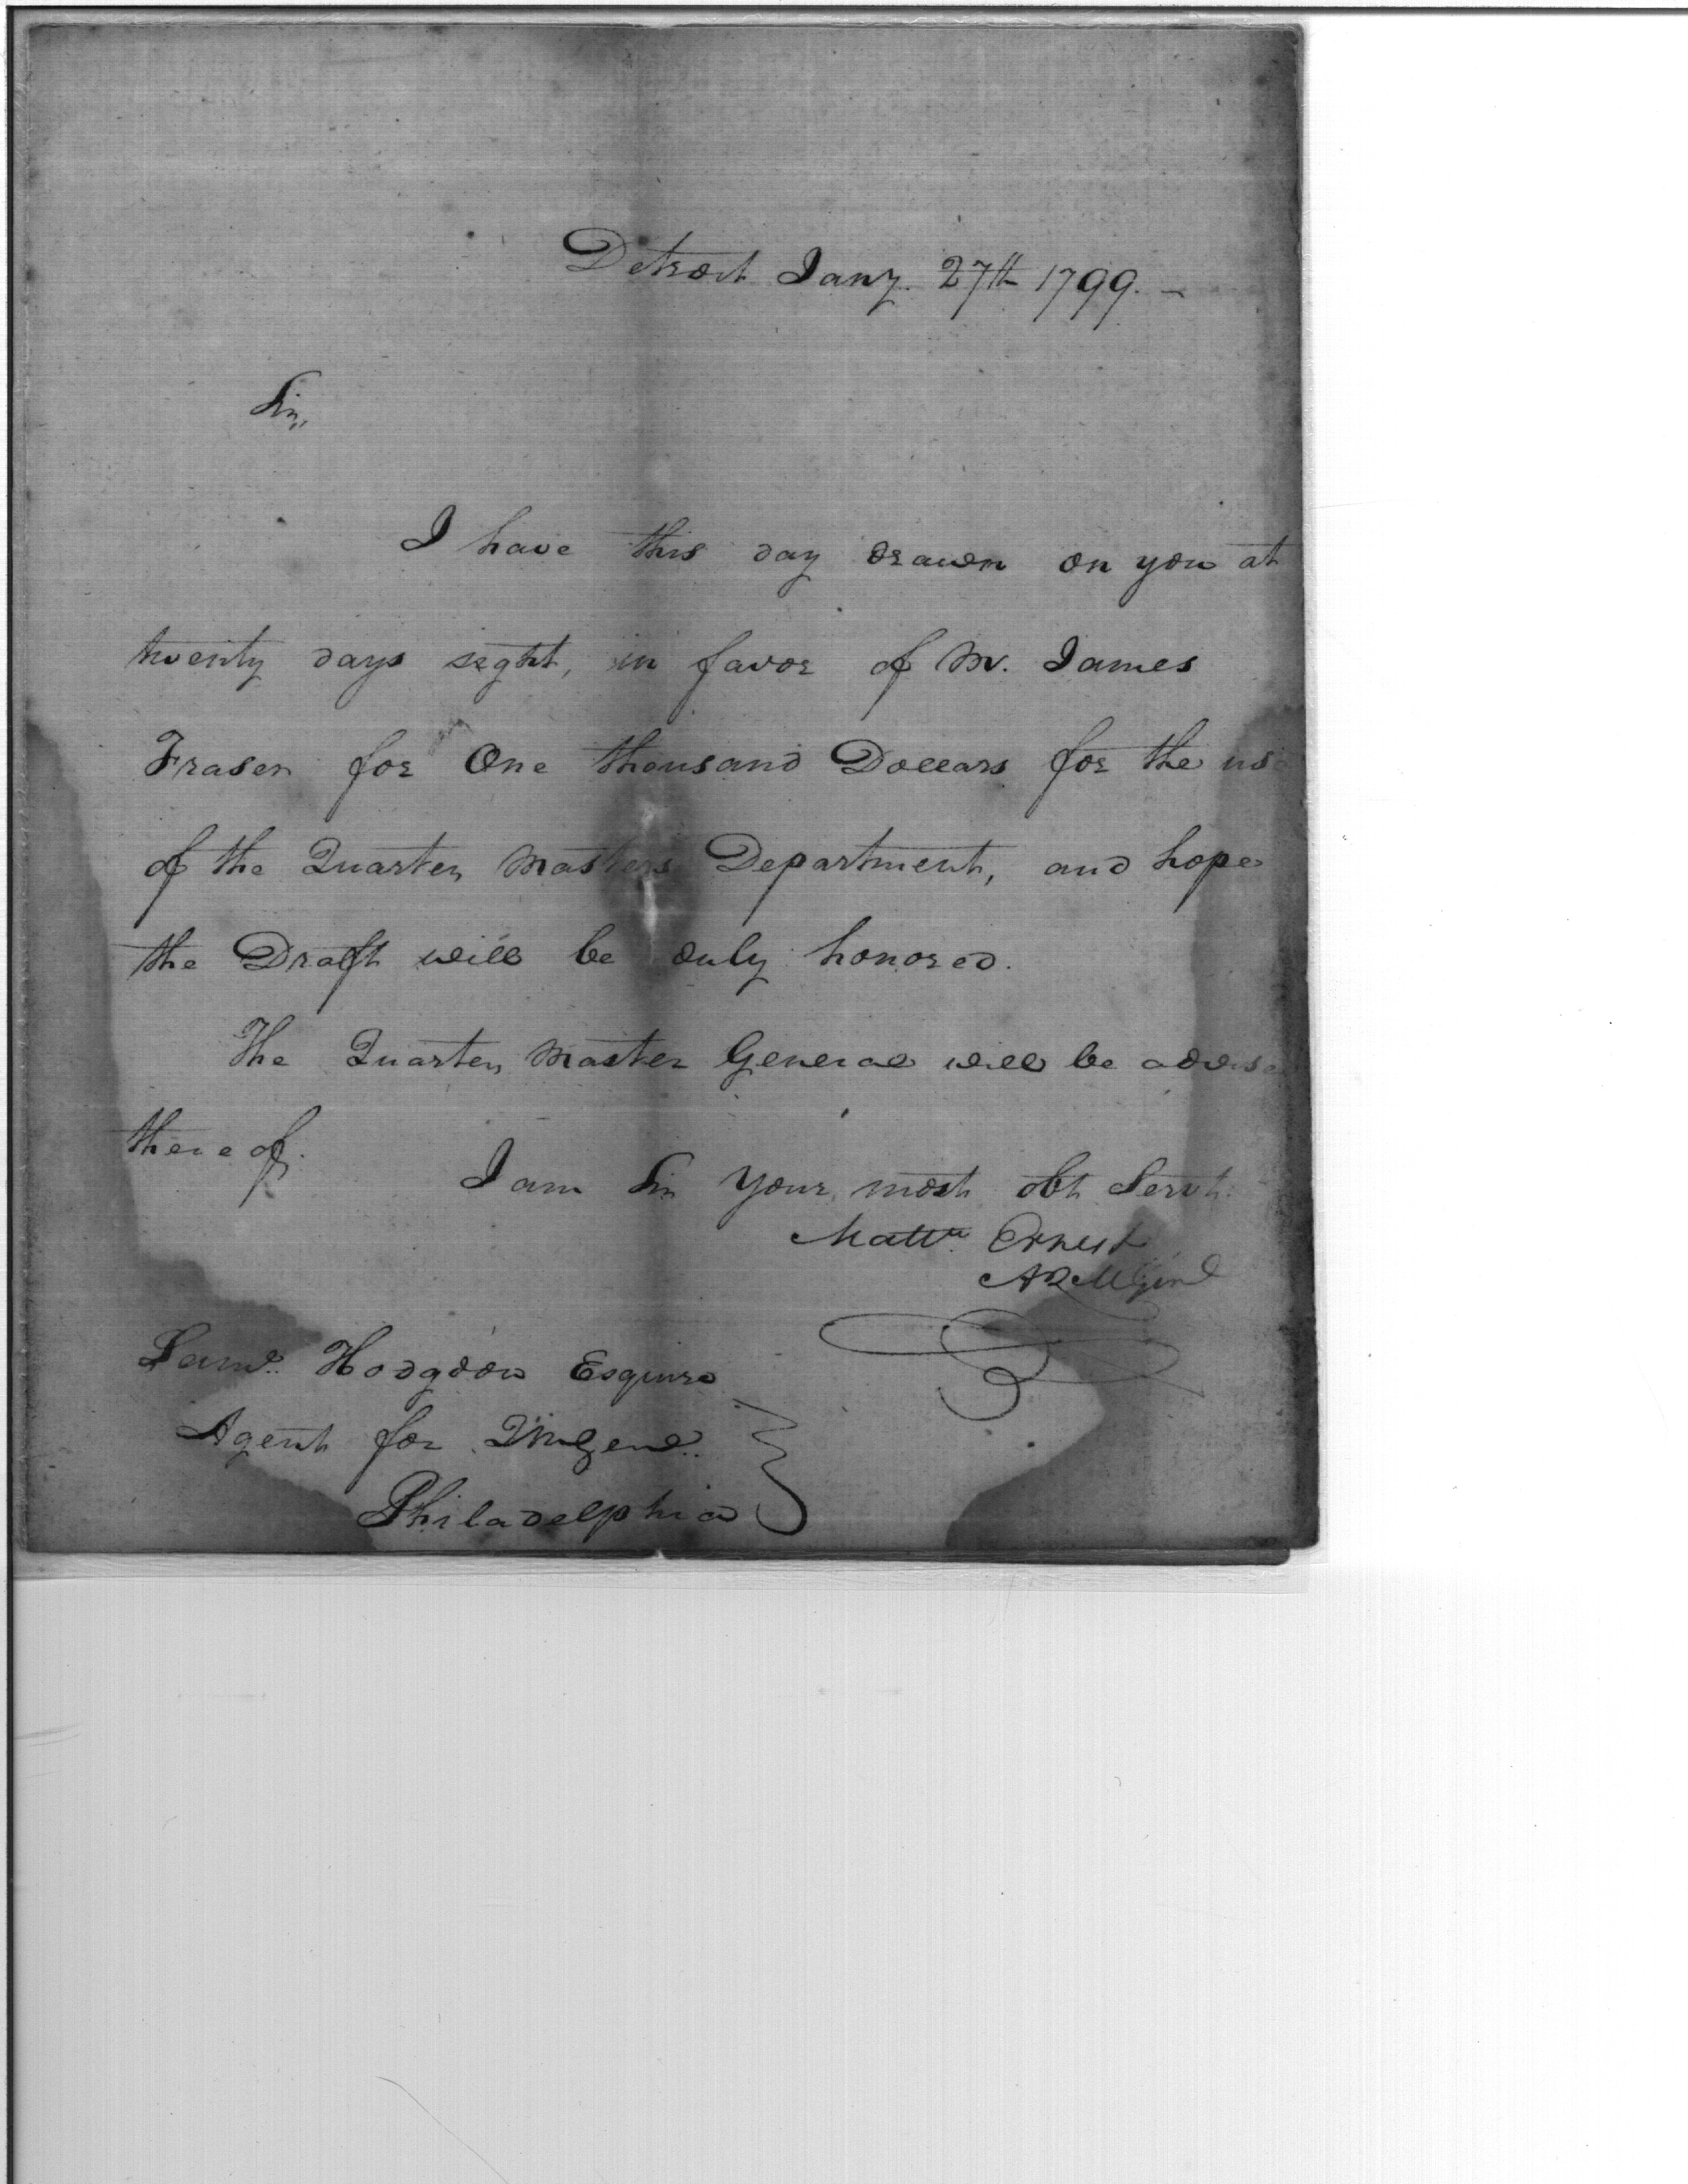 Detroit Jany. 27th 1799. —
Sir,
I have this day drawn on you at
twenty days sight, in favor of Mr. James
Fraser for One thousand Dollars for the use
of the Quarter Masters Department, and hope
the Draft will be duly honored.
The Quarter Master General will be advised
thereof.
I am Sir Your most obt Servt.
Mattw. Ernest
AQMGenl
Saml. Hodgdon Esquire
Agent for QMGenl.
Philadelphia